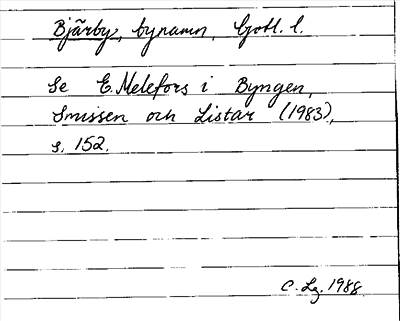 Bjärby, bynamn, Gotl. l.
Se E. Melefors i Byngen,
Smissen och Listar (1983),
s. 152.
C. Lg. 1988